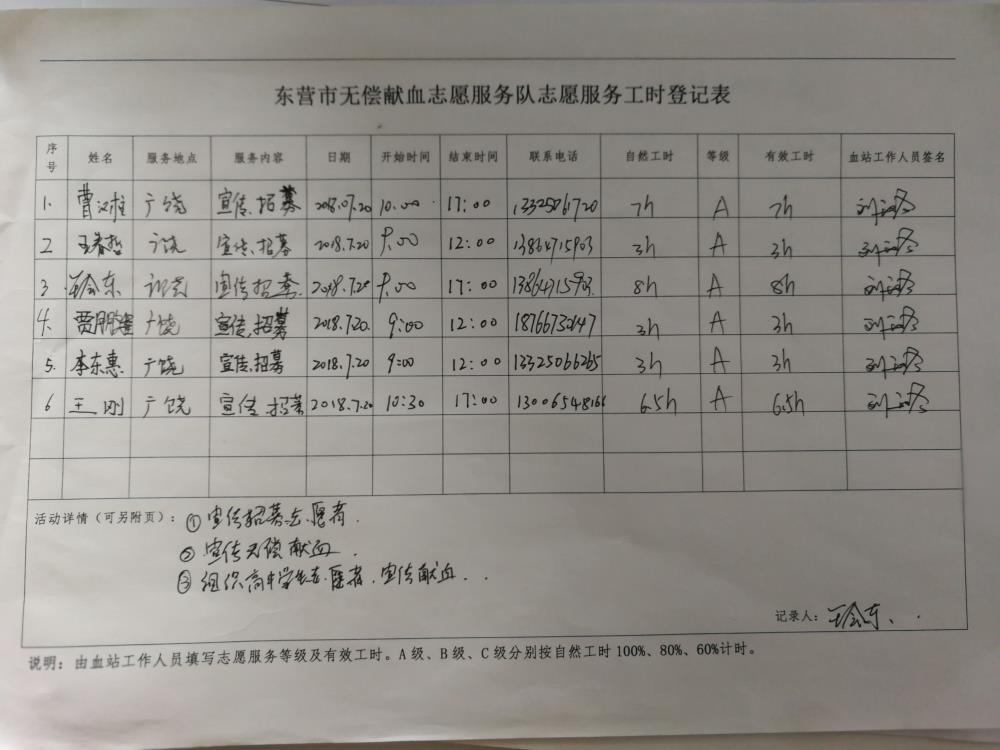 东营市无偿献血志愿服务队志愿服务工时登记表
序号 姓名 服务地点 服务内容 日期 开始时间 结束时间 联系电话 自然工时 等级 有效工时 血站工作人员签名
1. 曹汉柱 广饶 宣传、招募 2018.07.20 10:00 17:00 13325061720 7h A 7h
2 王春哲 广饶 宣传、招募 2018.7.20 9:00 12:00 13864715903 3h A 3h
3 王会东 广饶 宣传招募 2018.7.20 9:00 17:00 13864715903 8h A 8h
4. 贾鹏 广饶 宣传、招募 2018.7.20. 9:00 12:00 18766730147 3h A 3h
5. 李东惠 广饶 宣传、招募 2018.7.20 9:00 12:00 13325066265 3h A 3h
6 王刚 广饶 宣传、招募 2018.7.20 10:30 17:00 13006548166 6.5h A 6.5h
活动详情(可另附页): ①宣传招募志愿者.
②宣传无偿献血.
③组织高中学生志愿者.宣传献血..
记录人: 王会东
说明: 由血站工作人员填写志愿服务等级及有效工时。A级、B级、C级分别按自然工时100%、80%、60%计时。